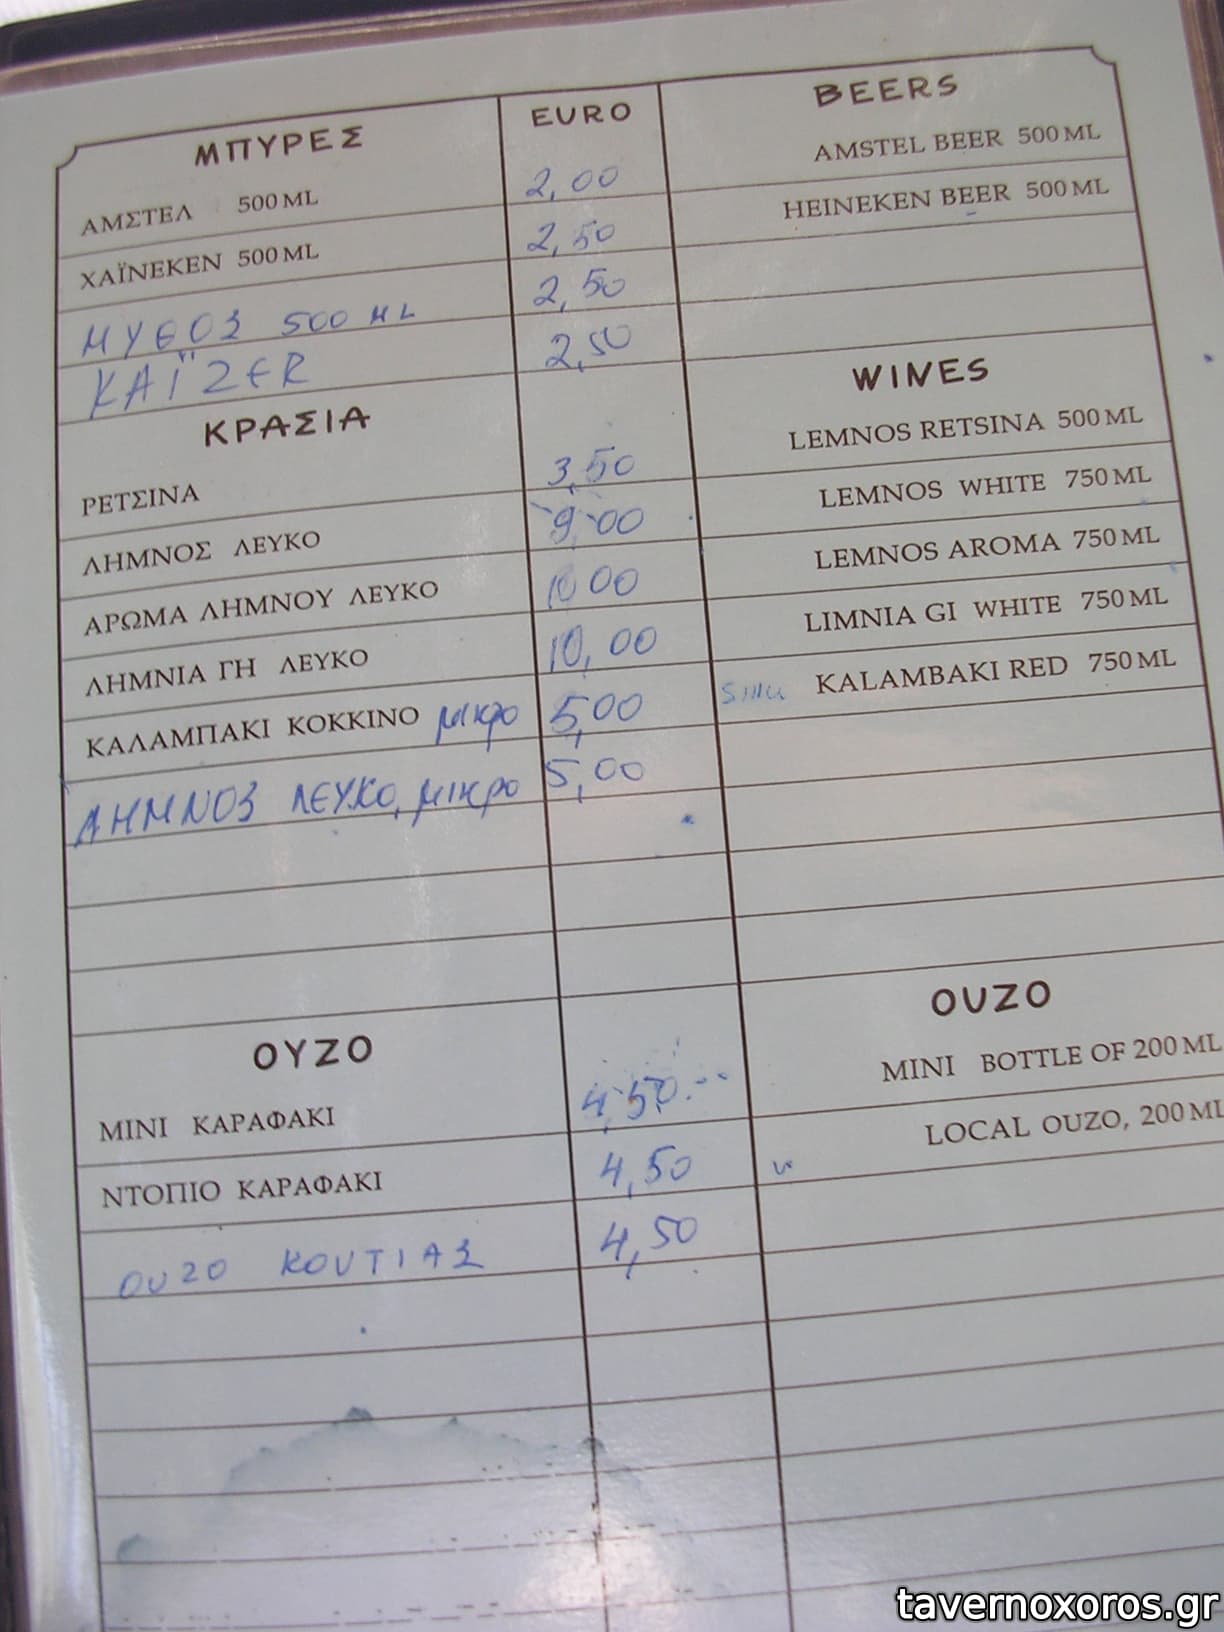 ΜΠΥΡΕΣ EURO BEERS
ΑΜΣΤΕΛ 500 ML 2,00 AMSTEL BEER 500 ML
ΧΑΪΝΕΚΕΝ 500 ML 2,50 HEINEKEN BEER 500 ML
ΜΥΘΟΣ 500 ML 2,50
ΚΑΪZER 2,50
ΚΡΑΣΙΑ WINES
ΡΕΤΣΙΝΑ 3,50 LEMNOS RETSINA 500 ML
ΛΗΜΝΟΣ ΛΕΥΚΟ 9,00 LEMNOS WHITE 750 ML
ΑΡΩΜΑ ΛΗΜΝΟΥ ΛΕΥΚΟ 10 00 LEMNOS AROMA 750 ML
ΛΗΜΝΙΑ ΓΗ ΛΕΥΚΟ 10,00 LIMNIA GI WHITE 750 ML
ΚΑΛΑΜΠΑΚΙ ΚΟΚΚΙΝΟ μικρο 5,00 KALAMBAKI RED 750 ML
ΛΗΜΝΟΣ ΛΕΥΚΟ, μικρο 5,00
ΟΥΖΟ OUZO
ΜΙΝΙ ΚΑΡΑΦΑΚΙ 4,50 MINI BOTTLE OF 200 ML
ΝΤΟΠΙΟ ΚΑΡΑΦΑΚΙ 4,50 LOCAL OUZO, 200 ML
ΟΥΖΟ ΚΟΥΤΙΑΣ 4,50
tavernoxoros.gr